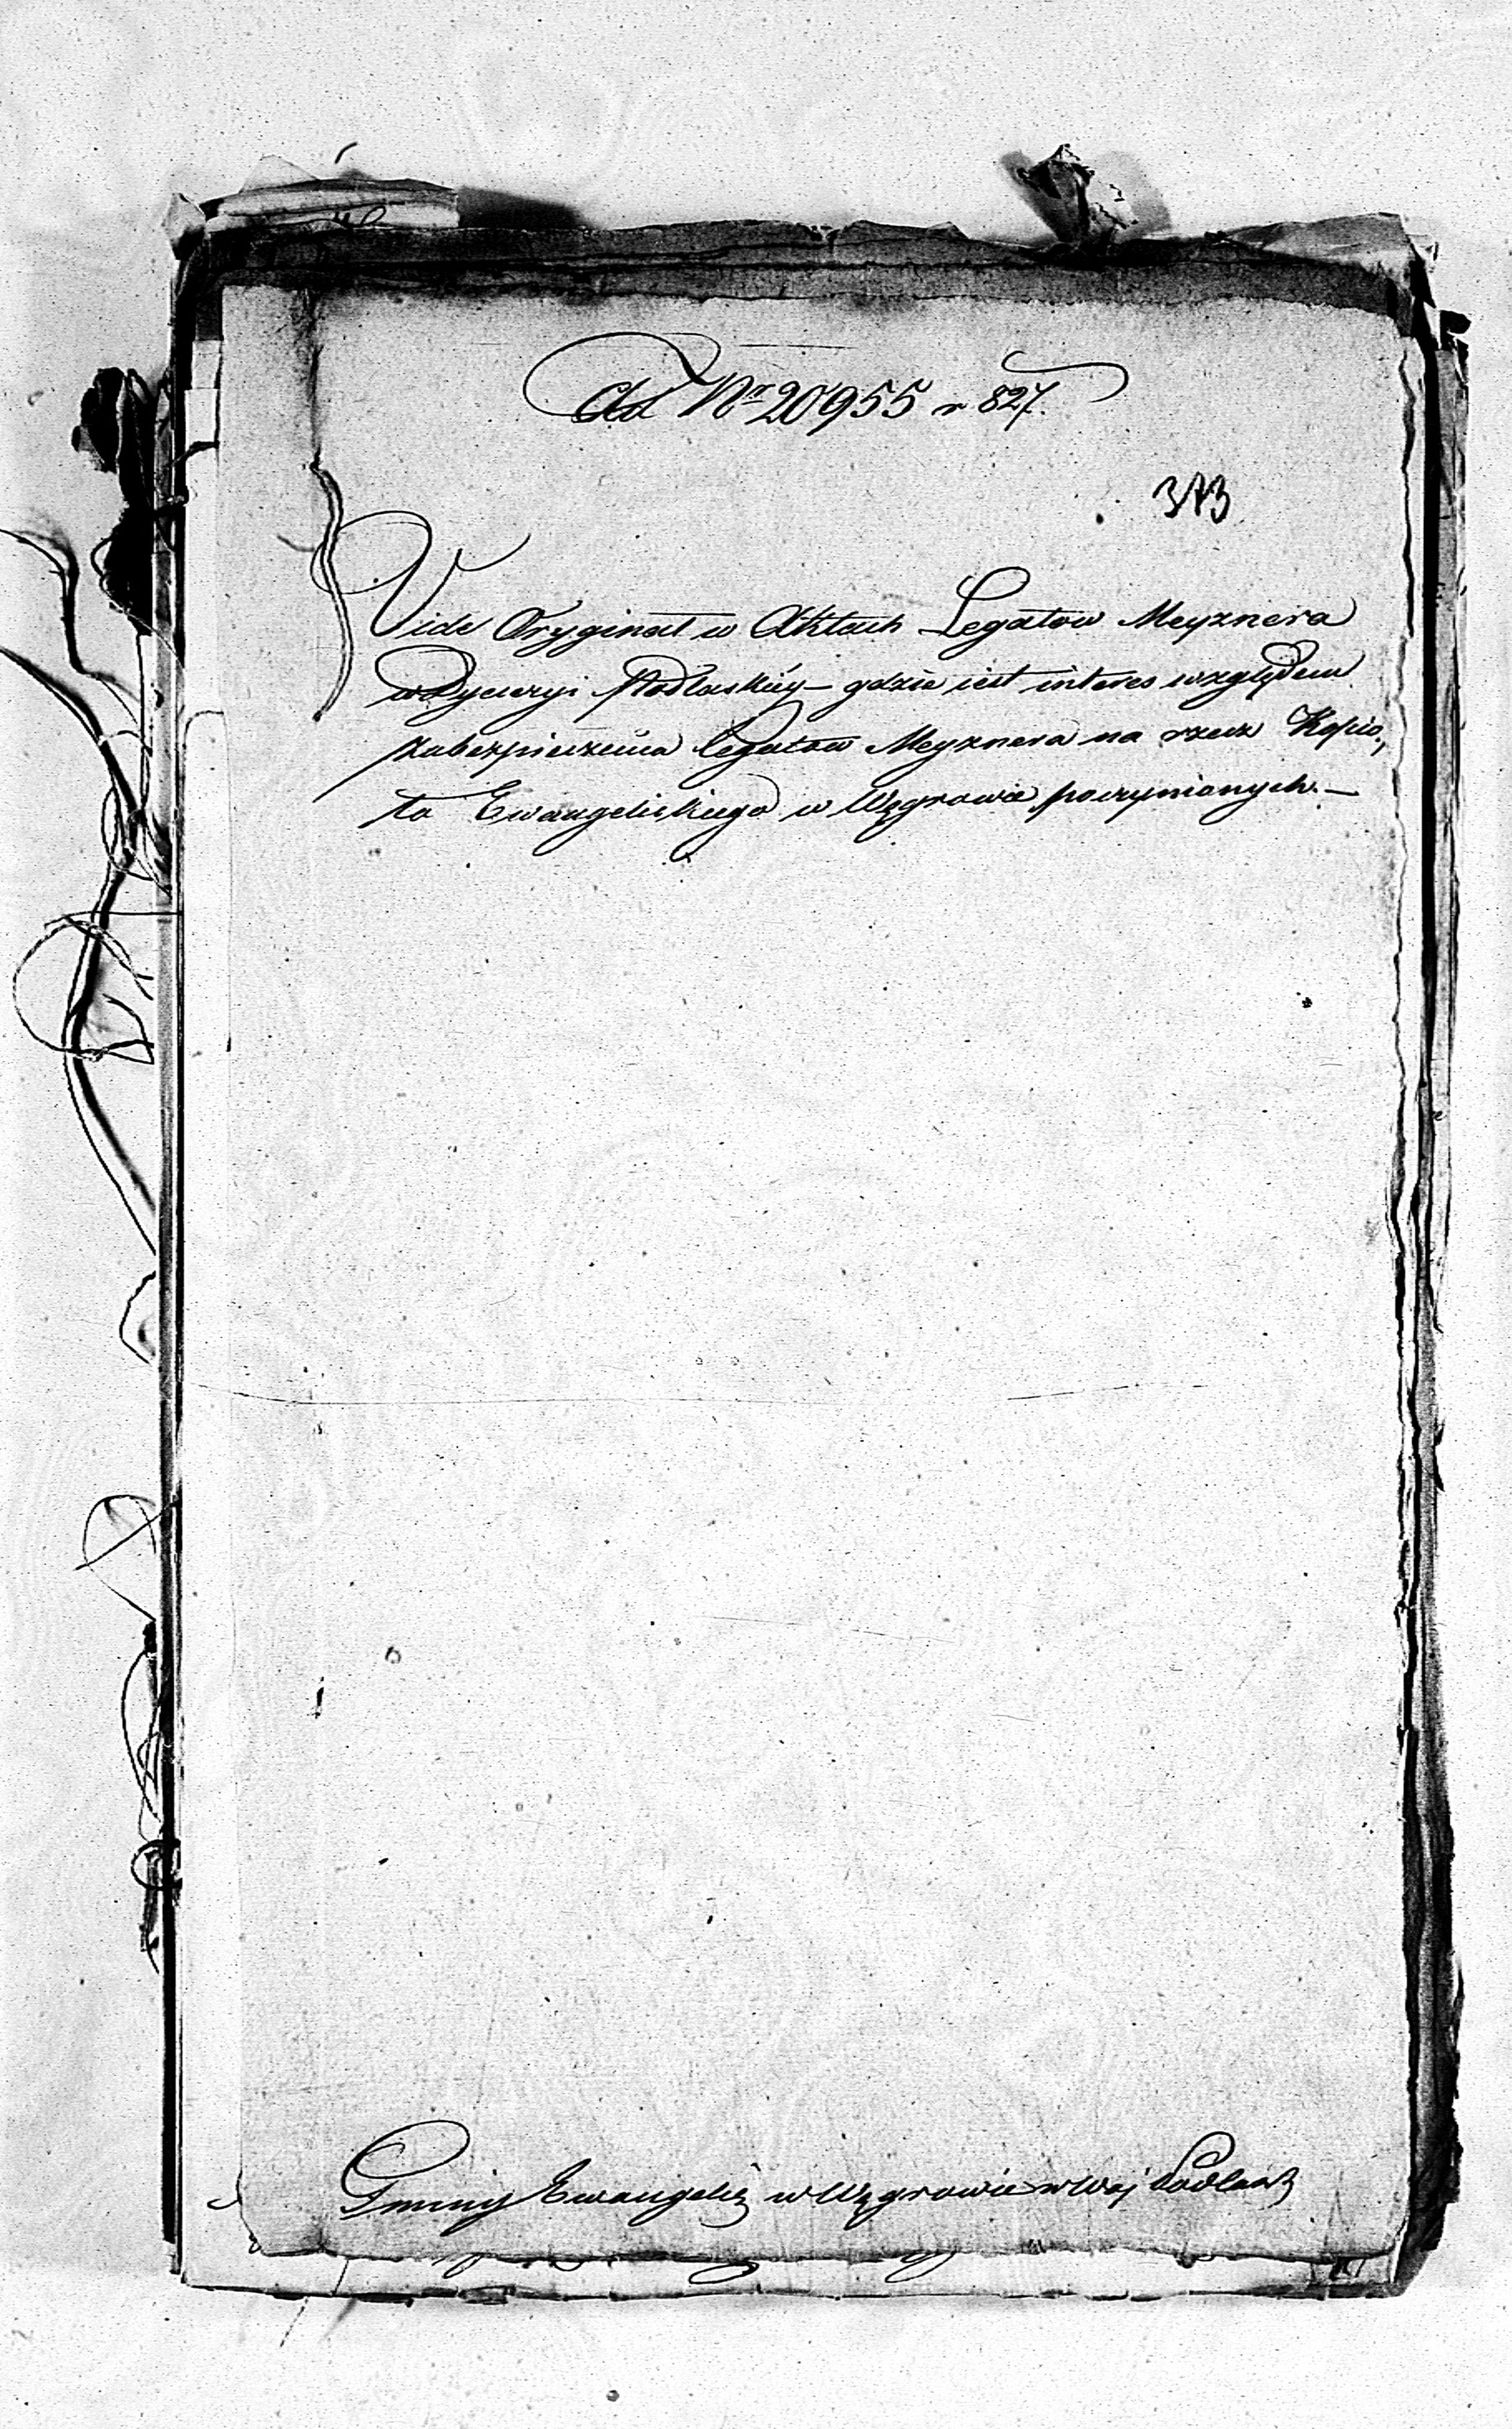 Ad Nr 20955 r 827.
373
Vide Oryginał w Aktach Legatow Meyznera
w Dyecezyi Podlaskiéy – gdzie iest interes względem
zabezpieczenia legatow Meyznera na rzecz Kościo,
ła Ewangelickiego w Węgrowie poczynionych. –
Gminy Ewangelic w Węgrowie w Woj Podlask